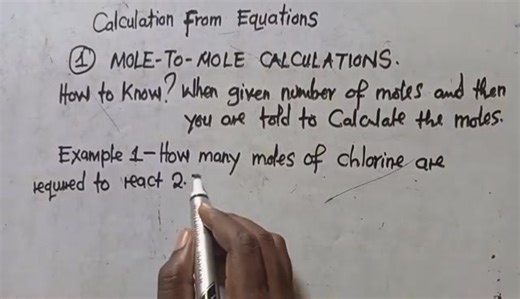 Calculation From Equations
① MOLE-TO-MOLE CALCULATIONS.
How to Know? When given number of moles and then
you are told to Calculate the moles.
Example 1-How many moles of chlorine are
requred to react 2.